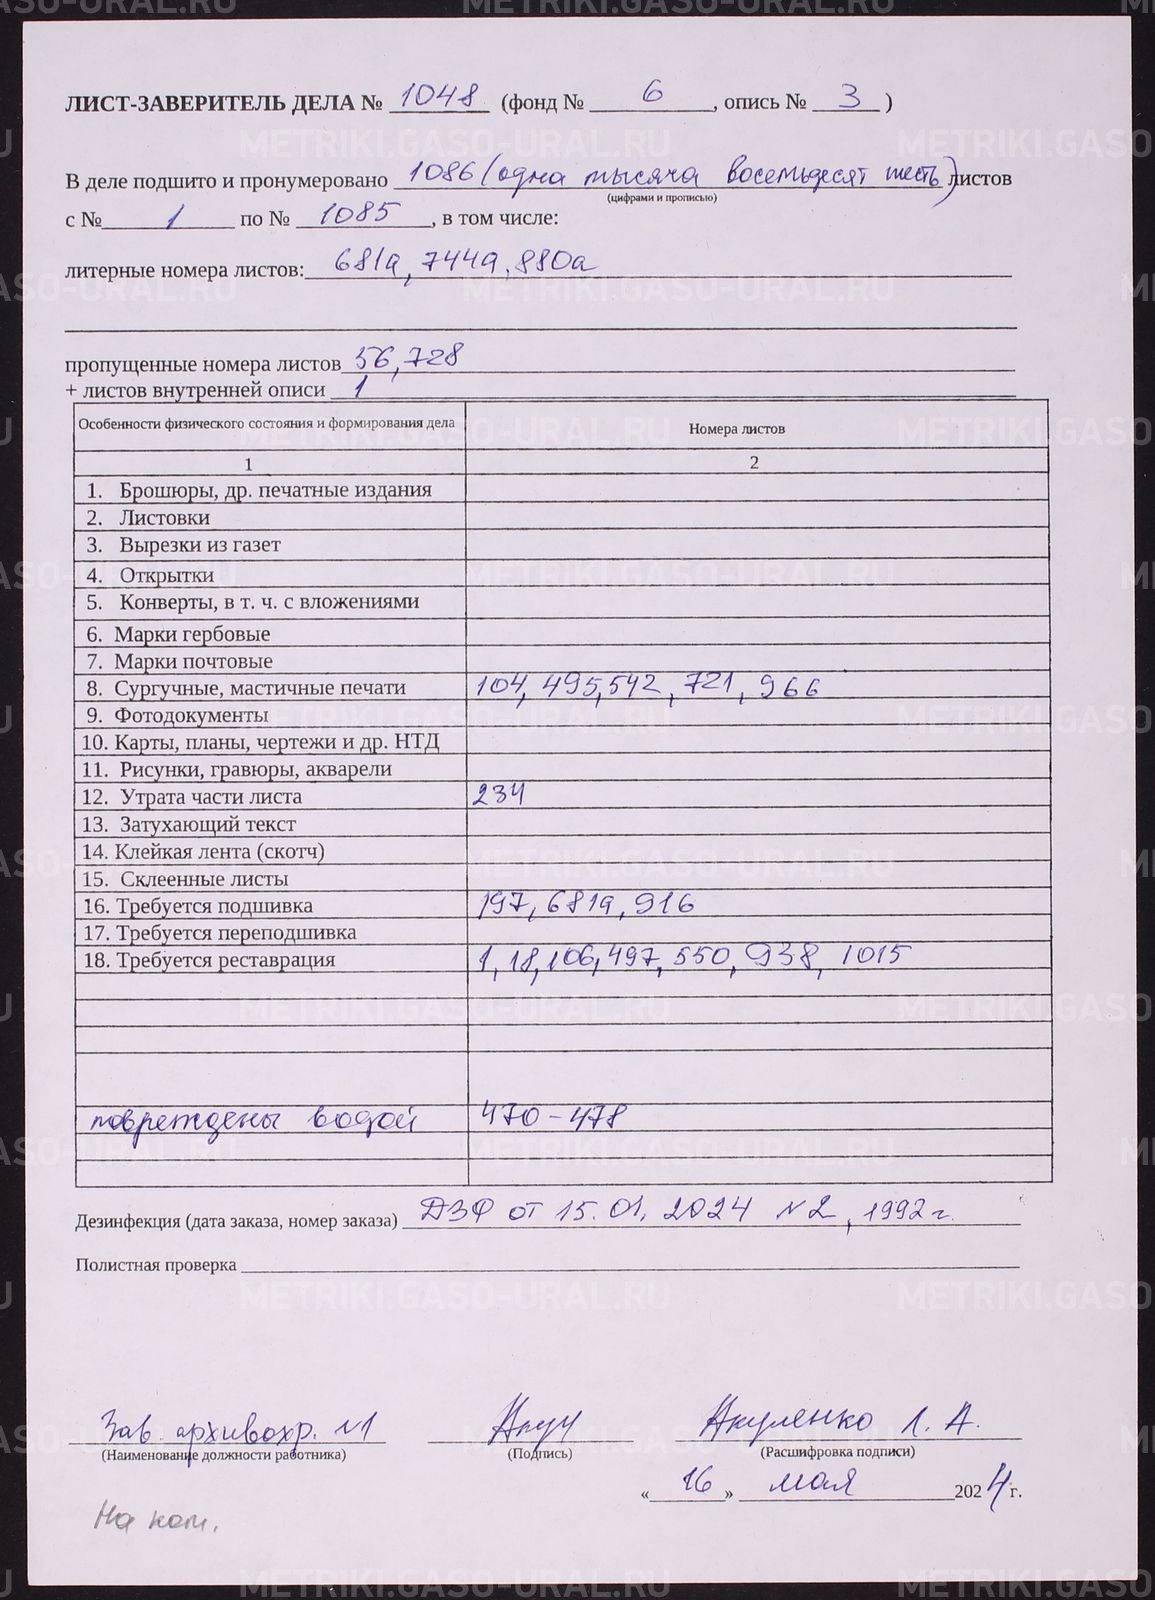 ЛИСТ-ЗАВЕРИТЕЛЬ ДЕЛА № 1048 (фонд № 6, опись № 3)
В деле подшито и пронумеровано 1086 (одна тысяча восемьдесят шесть) листов
(цифрами и прописью)
с № 1 по № 1085, в том числе:
литерные номера листов: 681а, 744а, 880а
пропущенные номера листов 56, 728
+ листов внутренней описи 1
Особенности физического состояния и формирования дела Номера листов
1 2
1. Брошюры, др. печатные издания
2. Листовки
3. Вырезки из газет
4. Открытки
5. Конверты, в т. ч. с вложениями
6. Марки гербовые
7. Марки почтовые
8. Сургучные, мастичные печати 104, 495, 542, 721, 966
9. Фотодокументы
10. Карты, планы, чертежи и др. НТД
11. Рисунки, гравюры, акварели
12. Утрата части листа 234
13. Затухающий текст
14. Клейкая лента (скотч)
15. Склеенные листы
16. Требуется подшивка 197, 681а, 916
17. Требуется переподшивка
18. Требуется реставрация 1, 18, 106, 497, 550, 938, 1015
повреждены водой 470-478
Дезинфекция (дата заказа, номер заказа) ДЗФ от 15.01.2024 №2, 1992 г.
Полистная проверка
Зав. архивохр. №1 Акуленко Л. А.
(Наименование должности работника) (Подпись) (Расшифровка подписи)
«16» мая 2024 г.
На
METRIKI.GASO-URAL.RU